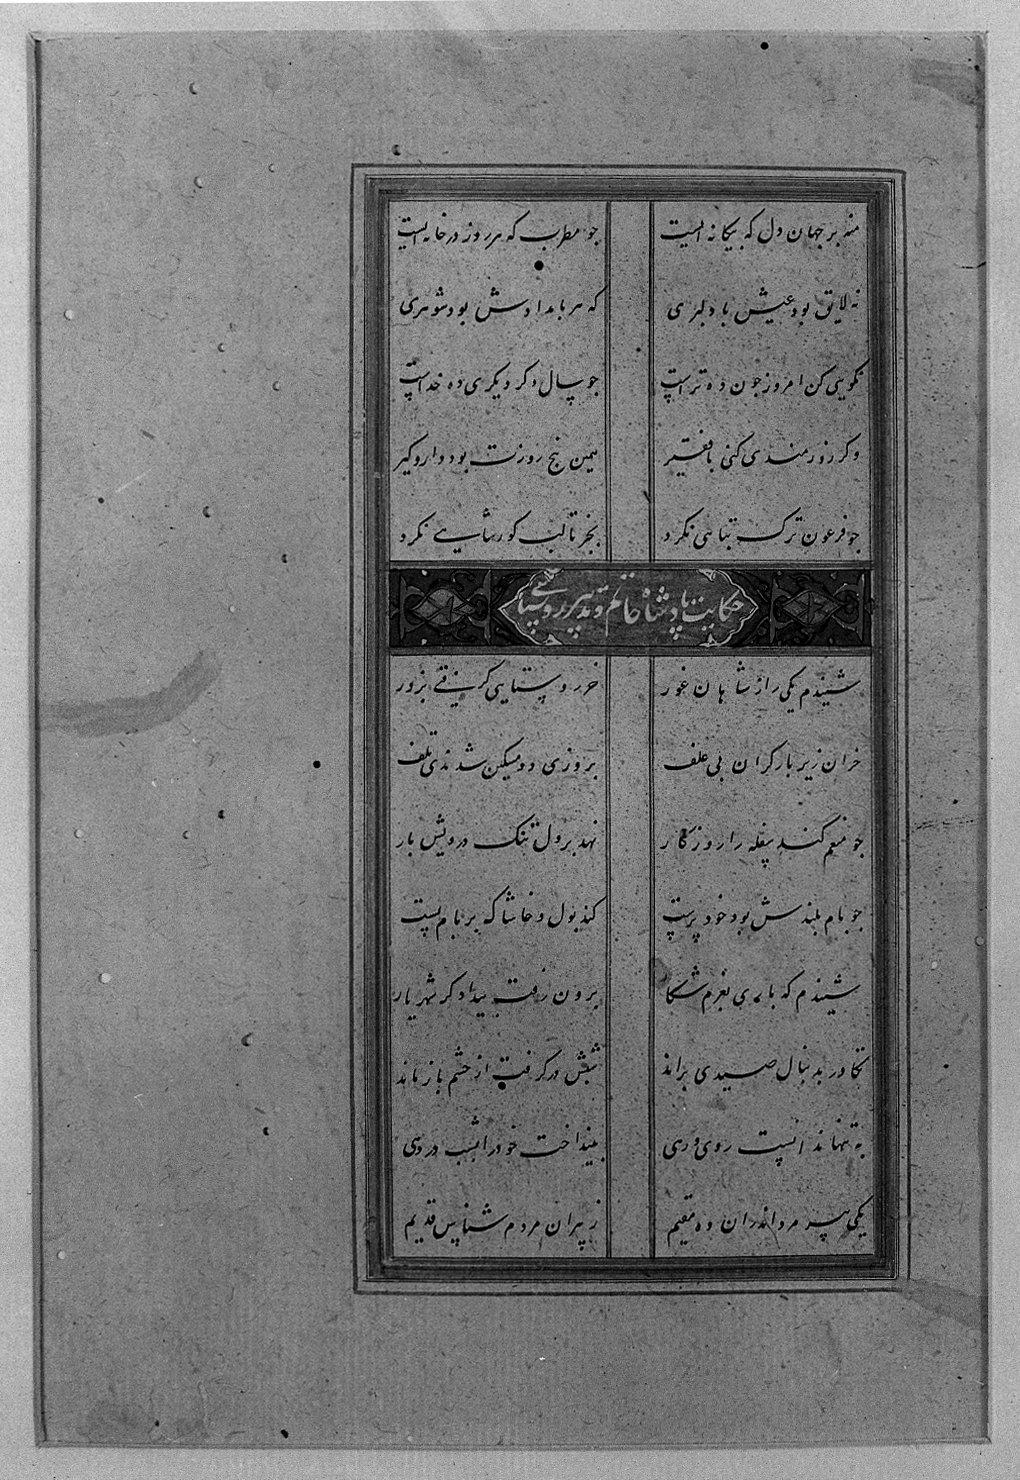 منه بر جهان دل که بیکانه ایست جو مطرب که هر روز در خانه ایست
نه لایق بود عیش با دلبری که هر بامدادش بود شوهری
نکویی کن امروز جون ده تراست جو سال دکر دیکری ده خداست
وکر زورمندی کنی با فقیر همین پنج روزت بود دار و کیر
جو فرعون ترک تباهی نکرد بجز تا لب کور شاهی نکرد
حکایت پادشاه ظالم و پیر روستایی
شنیدم یکی را ز شاهان غور خر روستایی کرفتی بزور
خران زیر بار کران بی علف بروزی دو مسکین شدندی تلف
جو منعم کند سفله را روزکار نهد بر دل تنک درویش بار
جو بام بلندش بود خود پرست کند بول و خاشاک بر بام پست
شنیدم که باری بعزم شکار برون رفت بیدادکر شهریار
تکاور بدنبال صیدی براند شبش درکرفت از حشم باز ماند
به تنها ندانست روی و رهی بینداخت خود را بشب در دهی
یکی پیر مرد اندران ده مقیم ز پیران مردم شناس قدیم